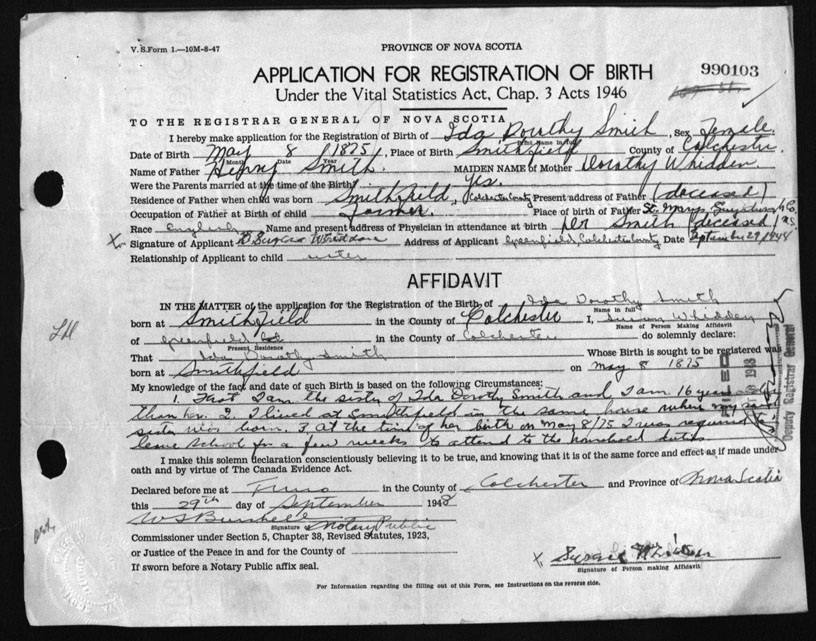 V. S. Form 1.—10M-8-47
PROVINCE OF NOVA SCOTIA
APPLICATION FOR REGISTRATION OF BIRTH
990103
Under the Vital Statistics Act, Chap. 3 Acts 1946
TO THE REGISTRAR GENERAL OF NOVA SCOTIA
I hereby make application for the Registration of Birth of Ida Dorothy Smith, Sex Female.
Print Name in full
Date of Birth May 8 1875, Place of Birth Smithfield County of Colchester
Month Date Year
Name of Father Henry Smith. MAIDEN NAME of Mother Dorothy Whidden.
Were the Parents married at the time of the Birth? Yes.
Residence of Father when child was born Smithfield, Colchester County Present address of Father (deceased)
Occupation of Father at Birth of child Farmer. Place of birth of Father St. Marys, Co.
Race English Name and present address of Physician in attendance at birth Dr Smith (deceased)
X Signature of Applicant Whidden Address of Applicant Greenfield, Colchester County Date September 29, 1948
Relationship of Applicant to child sister
AFFIDAVIT
IN THE MATTER of the application for the Registration of the Birth of Ida Dorothy Smith
Name in full
born at Smithfield in the County of Colchester I, Whidden
Name of Person Making Affidavit
of Greenfield Col. in the County of Colchester do solemnly declare:
Present Residence
That Ida Dorothy Smith Whose Birth is sought to be registered was
born at Smithfield on May 8 1875
My knowledge of the fact and date of such Birth is based on the following Circumstances:
1. That I am the sister of Ida Dorothy Smith and I am 16 years older
than her. 2. I lived at Smithfield in the same house where my said
sister was born. 3 At the time of her birth on May 8/75 I was required to
leave school for a few weeks to attend to the household duties
I make this solemn declaration conscientiously believing it to be true, and knowing that it is of the same force and effect as if made under
oath and by virtue of The Canada Evidence Act.
Declared before me at Truro in the County of Colchester and Province of Nova Scotia
this 29th day of September 1948
Notary Public
Signature
Commissioner under Section 5, Chapter 38, Revised Statutes, 1923,
or Justice of the Peace in and for the County of
If sworn before a Notary Public affix seal.
X Whidden
Signature of Person making Affidavit
For Information regarding the filling out of this Form, see Instructions on the reverse side.
Deputy Registrar General